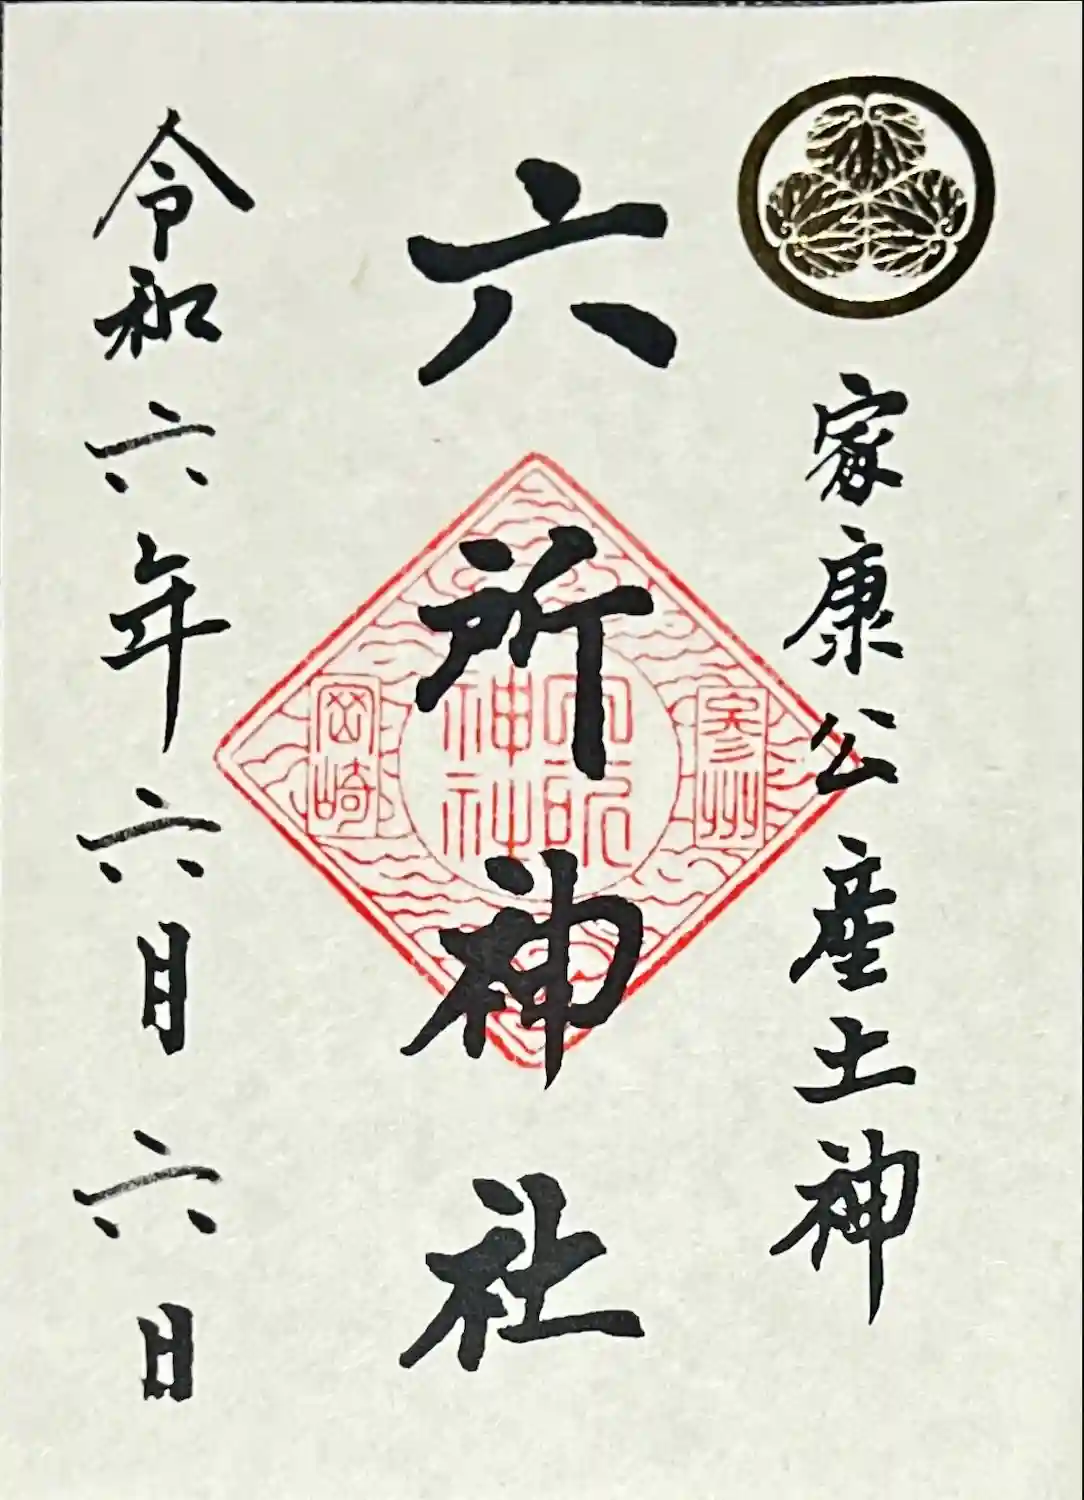 家康公産土神
六所神社
参州
六所
神社
岡崎
令和六年六月六日